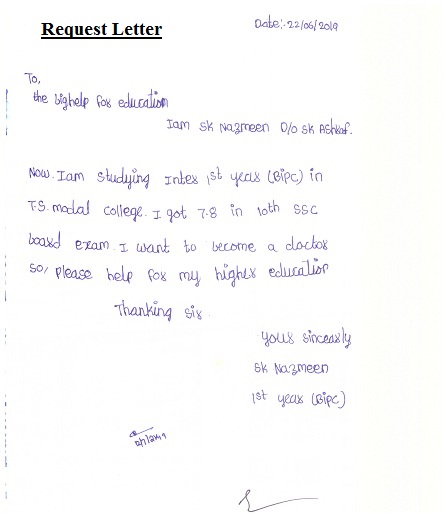 Request Letter
Date:- 22/06/2019
To,
the bighelp for education
Iam SK Nazmeen D/o SK Ashraf.
Now. Iam studying Inter 1st year (BiPC) in
T.S. modal college. I got 7.8 in 10th SSC
board exam. I want to become a doctor
so, please help for my higher education
Thanking sir.
your sincearly
SK Nazmeen
1st year (BiPC)